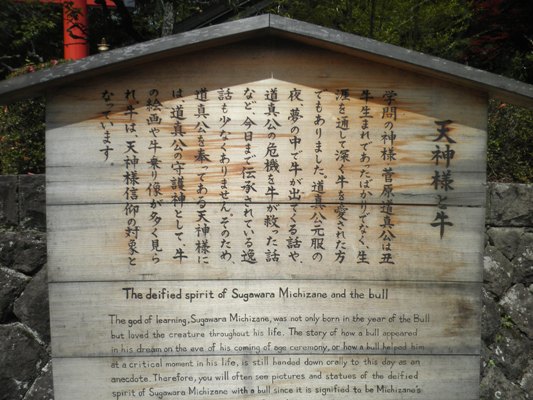 天神様と牛
学問の神様 菅原道真公は丑
牛生まれであったばかりでなく、生
涯を通して深く牛を愛された方
でもありました。道真公元服の
夜、夢の中で牛が出てくる話や、
道真公の危機を牛が救った話
など、今日まで伝承されている逸
話も少なくありません。そのため、
道真公を奉ってある天神様に
は道真公の守護神として、牛
の絵画や牛乗り像が多く見ら
れ、牛は、天神様信仰の対象と
なっています。
The deified spirit of Sugawara Michizane and the bull
The god of learning, Sugawara Michizane, was not only born in the year of the Bull
but loved the creature throughout his life. The story of how a bull appeared
in his dream on the eve of his coming of age ceremony, or how a bull helped him
at a critical moment in his life, is still handed down orally to this day as an
anecdote. Therefore, you will often see pictures and statues of the deified
spirit of Sugawara Michizane with a bull since it is signified to be Michizane's